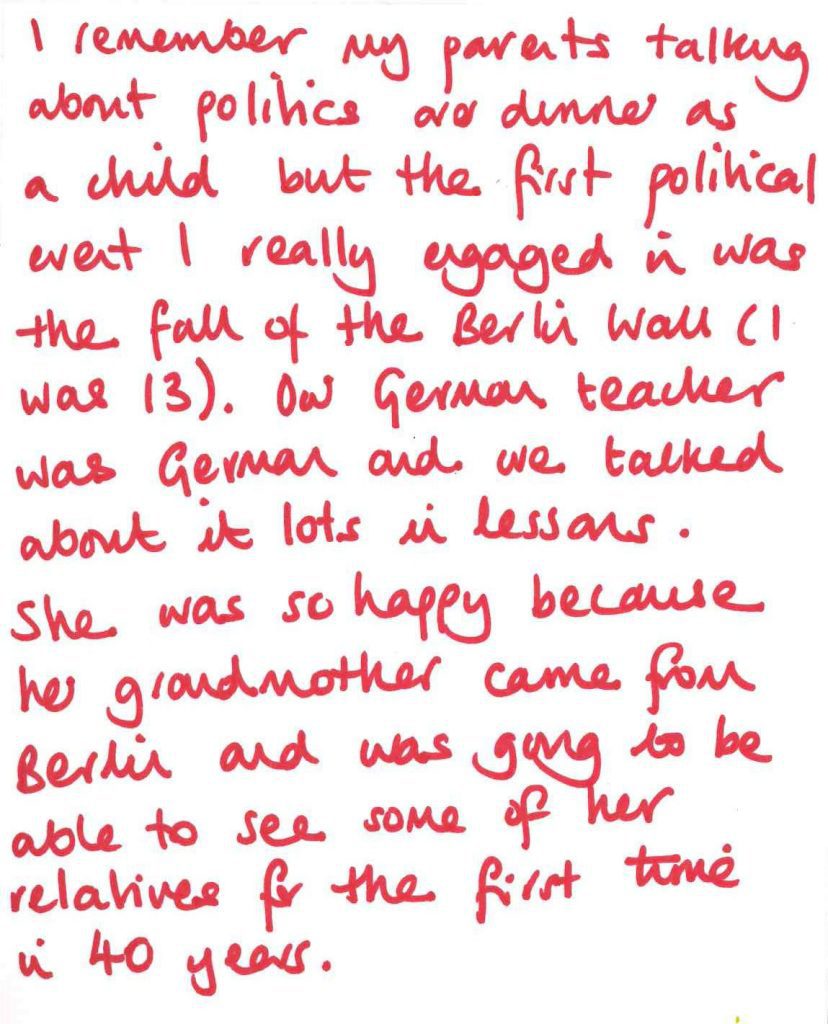 I remember my parents talking
about politics over dinner as
a child but the first political
event I really engaged in was
the fall of the Berlin Wall (I
was 13). Our German teacher
was German and we talked
about it lots in lessons.
She was so happy because
her grandmother came from
Berlin and was going to be
able to see some of her
relatives for the first time
in 40 years.